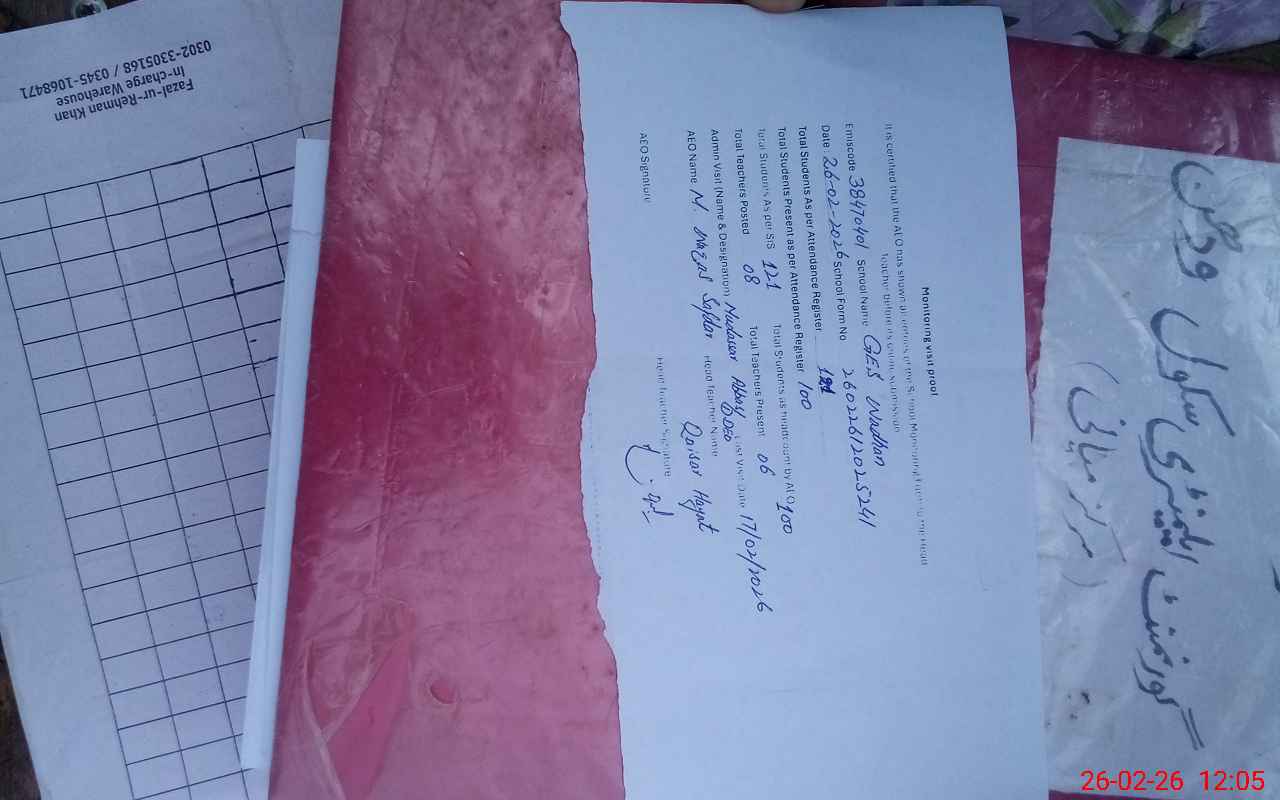 Monitoring visit proof
It is certified that the AEO has shown all entries of the School Monitoring Form to the Head
Teacher before its online submission
Emiscode 38470401 School Name GES Wadhan
Date: 26-02-2026 School Form No 26022612025241
Total Students As per Attendance Register 121
Total Students Present as per Attendance Register 100
Total Students As per SIS 121 Total Students as headcount by AEO 100
Total Teachers Posted 08 Total Teachers Present 06
Admin Visit (Name & Designation) Mudassar Abbas DDEO Last Visit Date 17/02/2026
AEO Name M. Safdar Head Teacher Name Qaisar Hayat
AEO Signature Head Teacher Signature
گورنمنٹ ایلیمنٹری سکول وڈھن
(مرکز میانی)
Fazal-ur-Rehman Khan
In-charge Warehouse
0302-3305168 / 0345-1068471
26-02-26 12:05